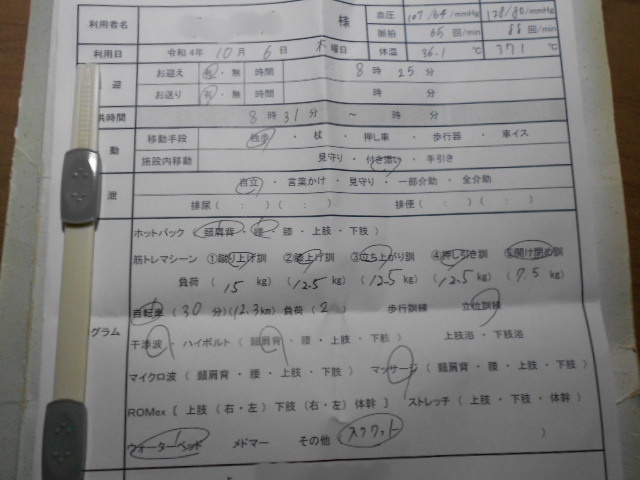 利用者名 様 血圧 107/64/mmHg 128/80/mmHg
脈拍 65 回/min 88 回/min
利用日 令和4年 10月 6日 木曜日 体温 36.1 ℃ 37.1 ℃
迎 お迎え 有・無 時間 8時 25分
お送り 有・無 時間 時 分
供時間 8時 31分 ~ 時 分
動 移動手段 独歩・杖・押し車・歩行器・車イス
施設内移動 見守り・付き添い・手引き
泄 自立・言葉かけ・見守り・一部介助・全介助
排尿( : )( : ) 排便( : )( : )
ホットパック(頚肩背・腰・膝・上肢・下肢)
筋トレマシーン ①蹴り上げ訓 ②膝上げ訓 ③立ち上がり訓 ④押し引き訓 ⑤開け閉め訓
負荷 ( 15 kg) (12.5 kg) (12.5 kg) (12.5 kg) (7.5 kg)
自転車 (30 分)(12.3km) 負荷(2 ) 歩行訓練 立位訓練
グラム
干渉波・ハイボルト(頚肩背・腰・上肢・下肢) 上肢浴・下肢浴
マイクロ波(頚肩背・腰・上肢・下肢) マッサージ(頚肩背・腰・上肢・下肢)
ROMex [ 上肢(右・左)下肢(右・左)体幹] ストレッチ(上肢・下肢・体幹)
ウォーターベッド メドマー その他 (スクワット )